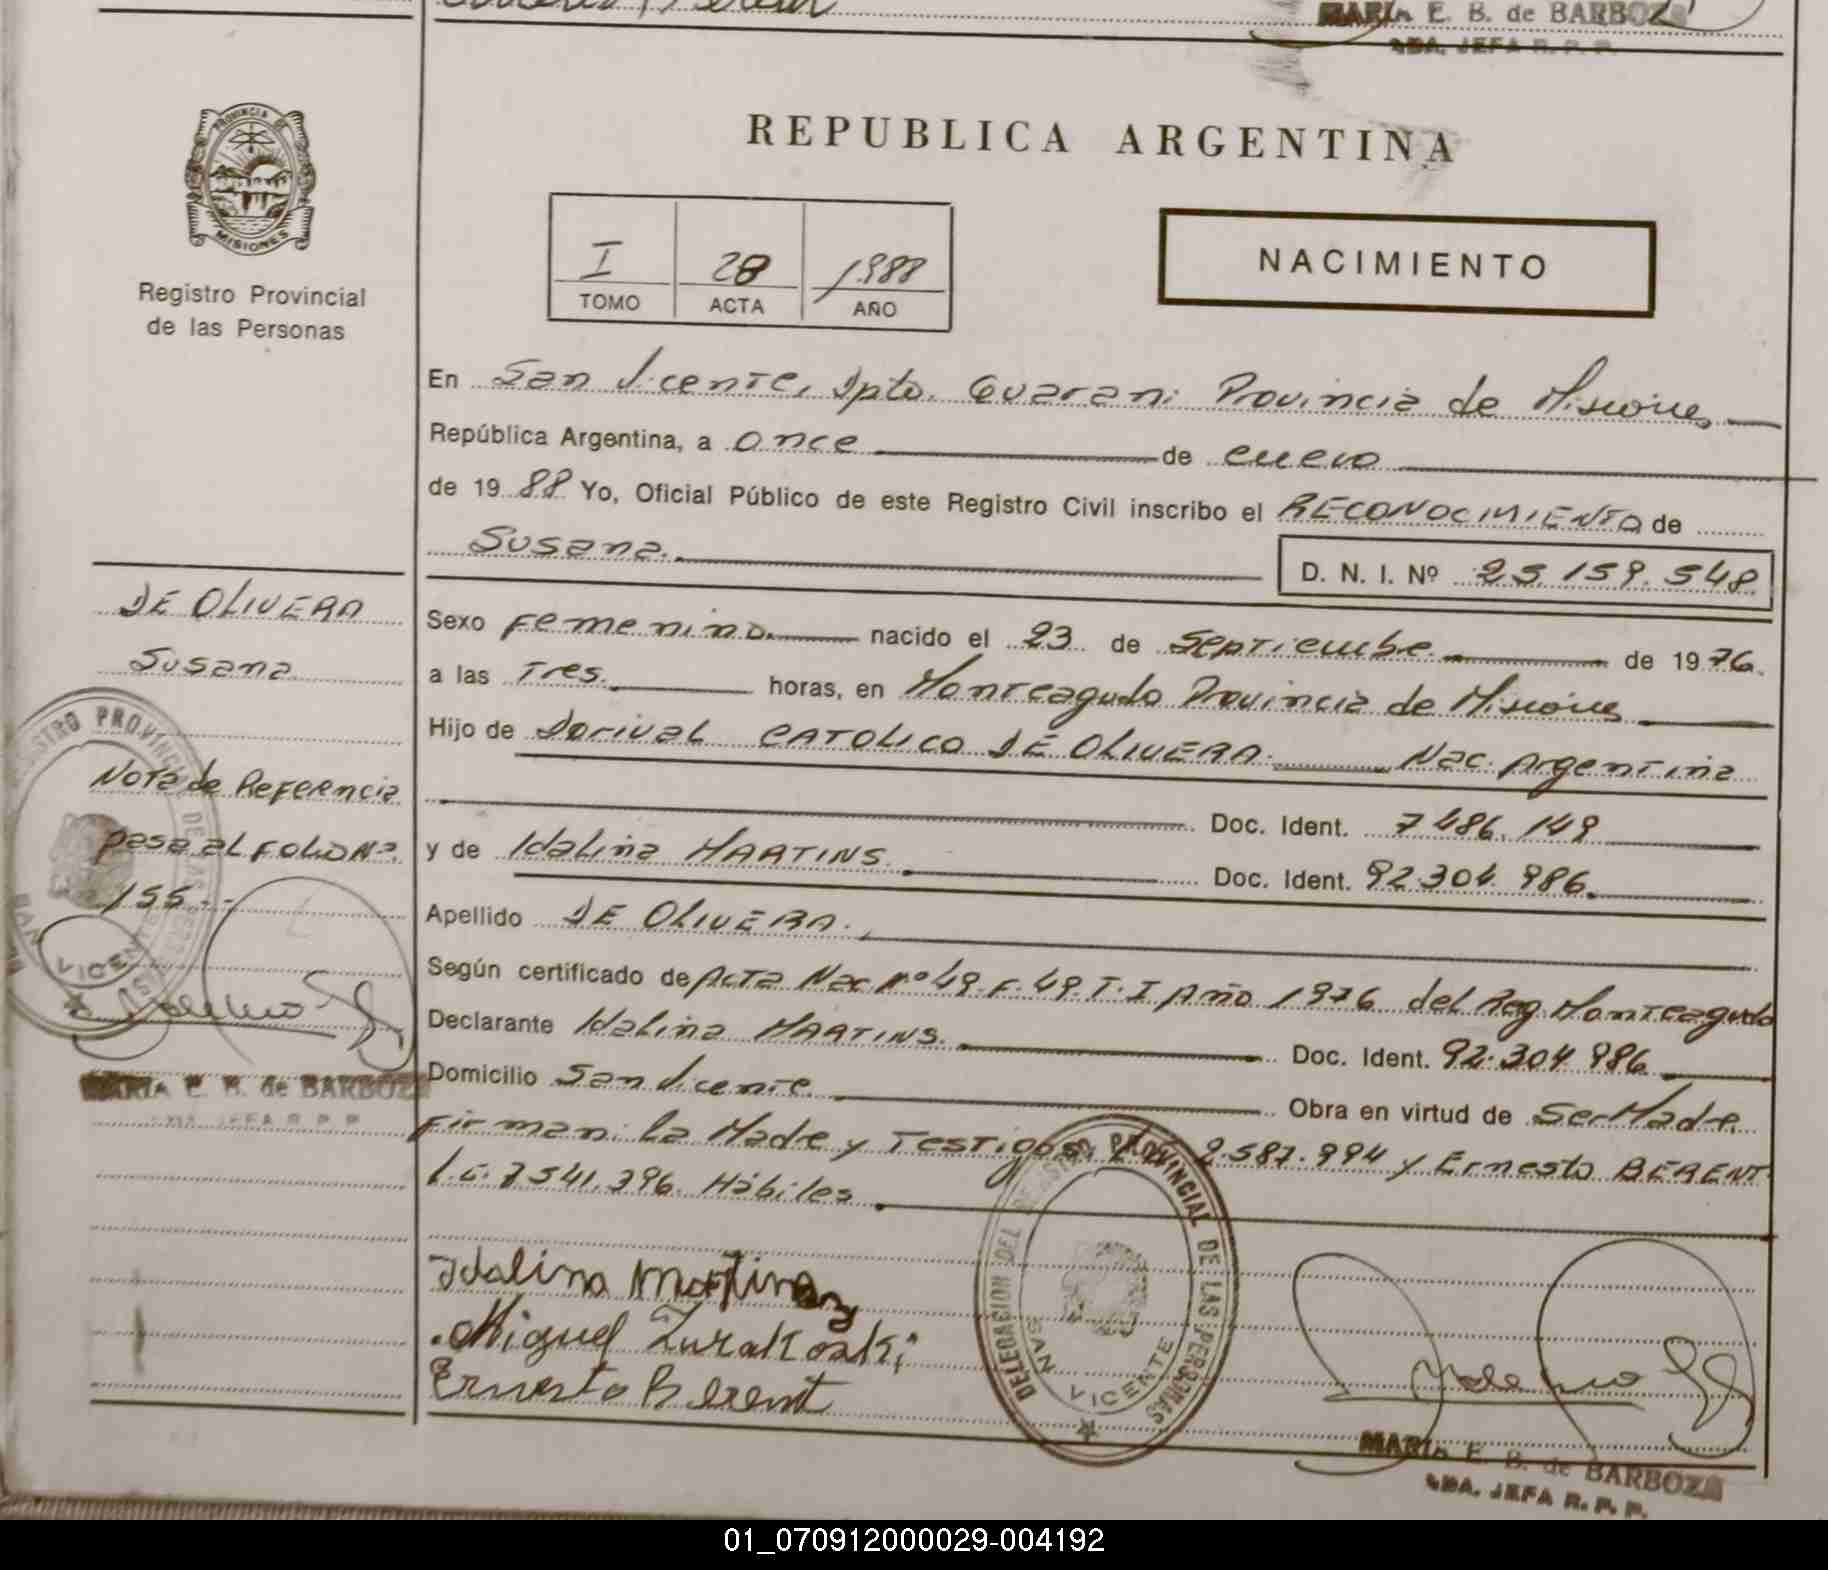 MARIA E. B. de BARBOZA
2DA. JEFA R. P. P.
PROVINCIA DE
MISIONES
Registro Provincial
de las Personas
REPUBLICA ARGENTINA
I 28 1988
TOMO ACTA AÑO
NACIMIENTO
En San Vicente, Dpto. Guarani Provincia de Misiones
República Argentina, a once de enero
de 1988 Yo, Oficial Público de este Registro Civil inscribo el RECONOCIMIENTO de
Susana. D. N. I. Nº 25.159.548
Sexo Femenino. nacido el 23 de Septiembre. de 1976.
a las Tres. horas, en Monteagudo Provincia de Misiones
Hijo de Dorival CATOLICO DE OLIVERA. Nac. Argentina
Doc. Ident. 7486.149
y de Idalina MARTINS. Doc. Ident. 92.304.986.
Apellido DE OLIVERA.
Según certificado de Acta Nac. Nº 49. F. 49. T. I Año 1976 del Reg. Monteagudo
Declarante Idalina MARTINS. Doc. Ident. 92.304.986
Domicilio San Vicente. Obra en virtud de Ser Madre.
Firman: la Madre y Testigos: 2.587.994 y Ernesto BERENT
L.E. 7541.396. Hábiles
DE OLIVERA
Susana
Nota de Referencia
pasa al FOLIO Nº
155.-
REGISTRO PROVINCIAL DE LAS PERSONAS
SAN VICENTE
MARIA E. B. de BARBOZA
2DA. JEFA R. P. P.
Idalina Martinez
Miguel Zurakoski
Ernesto Berent
DELEGACION DEL REGISTRO PROVINCIAL DE LAS PERSONAS
SAN VICENTE
MARIA E. B. de BARBOZA
2DA. JEFA R. P. P.
01_070912000029-004192